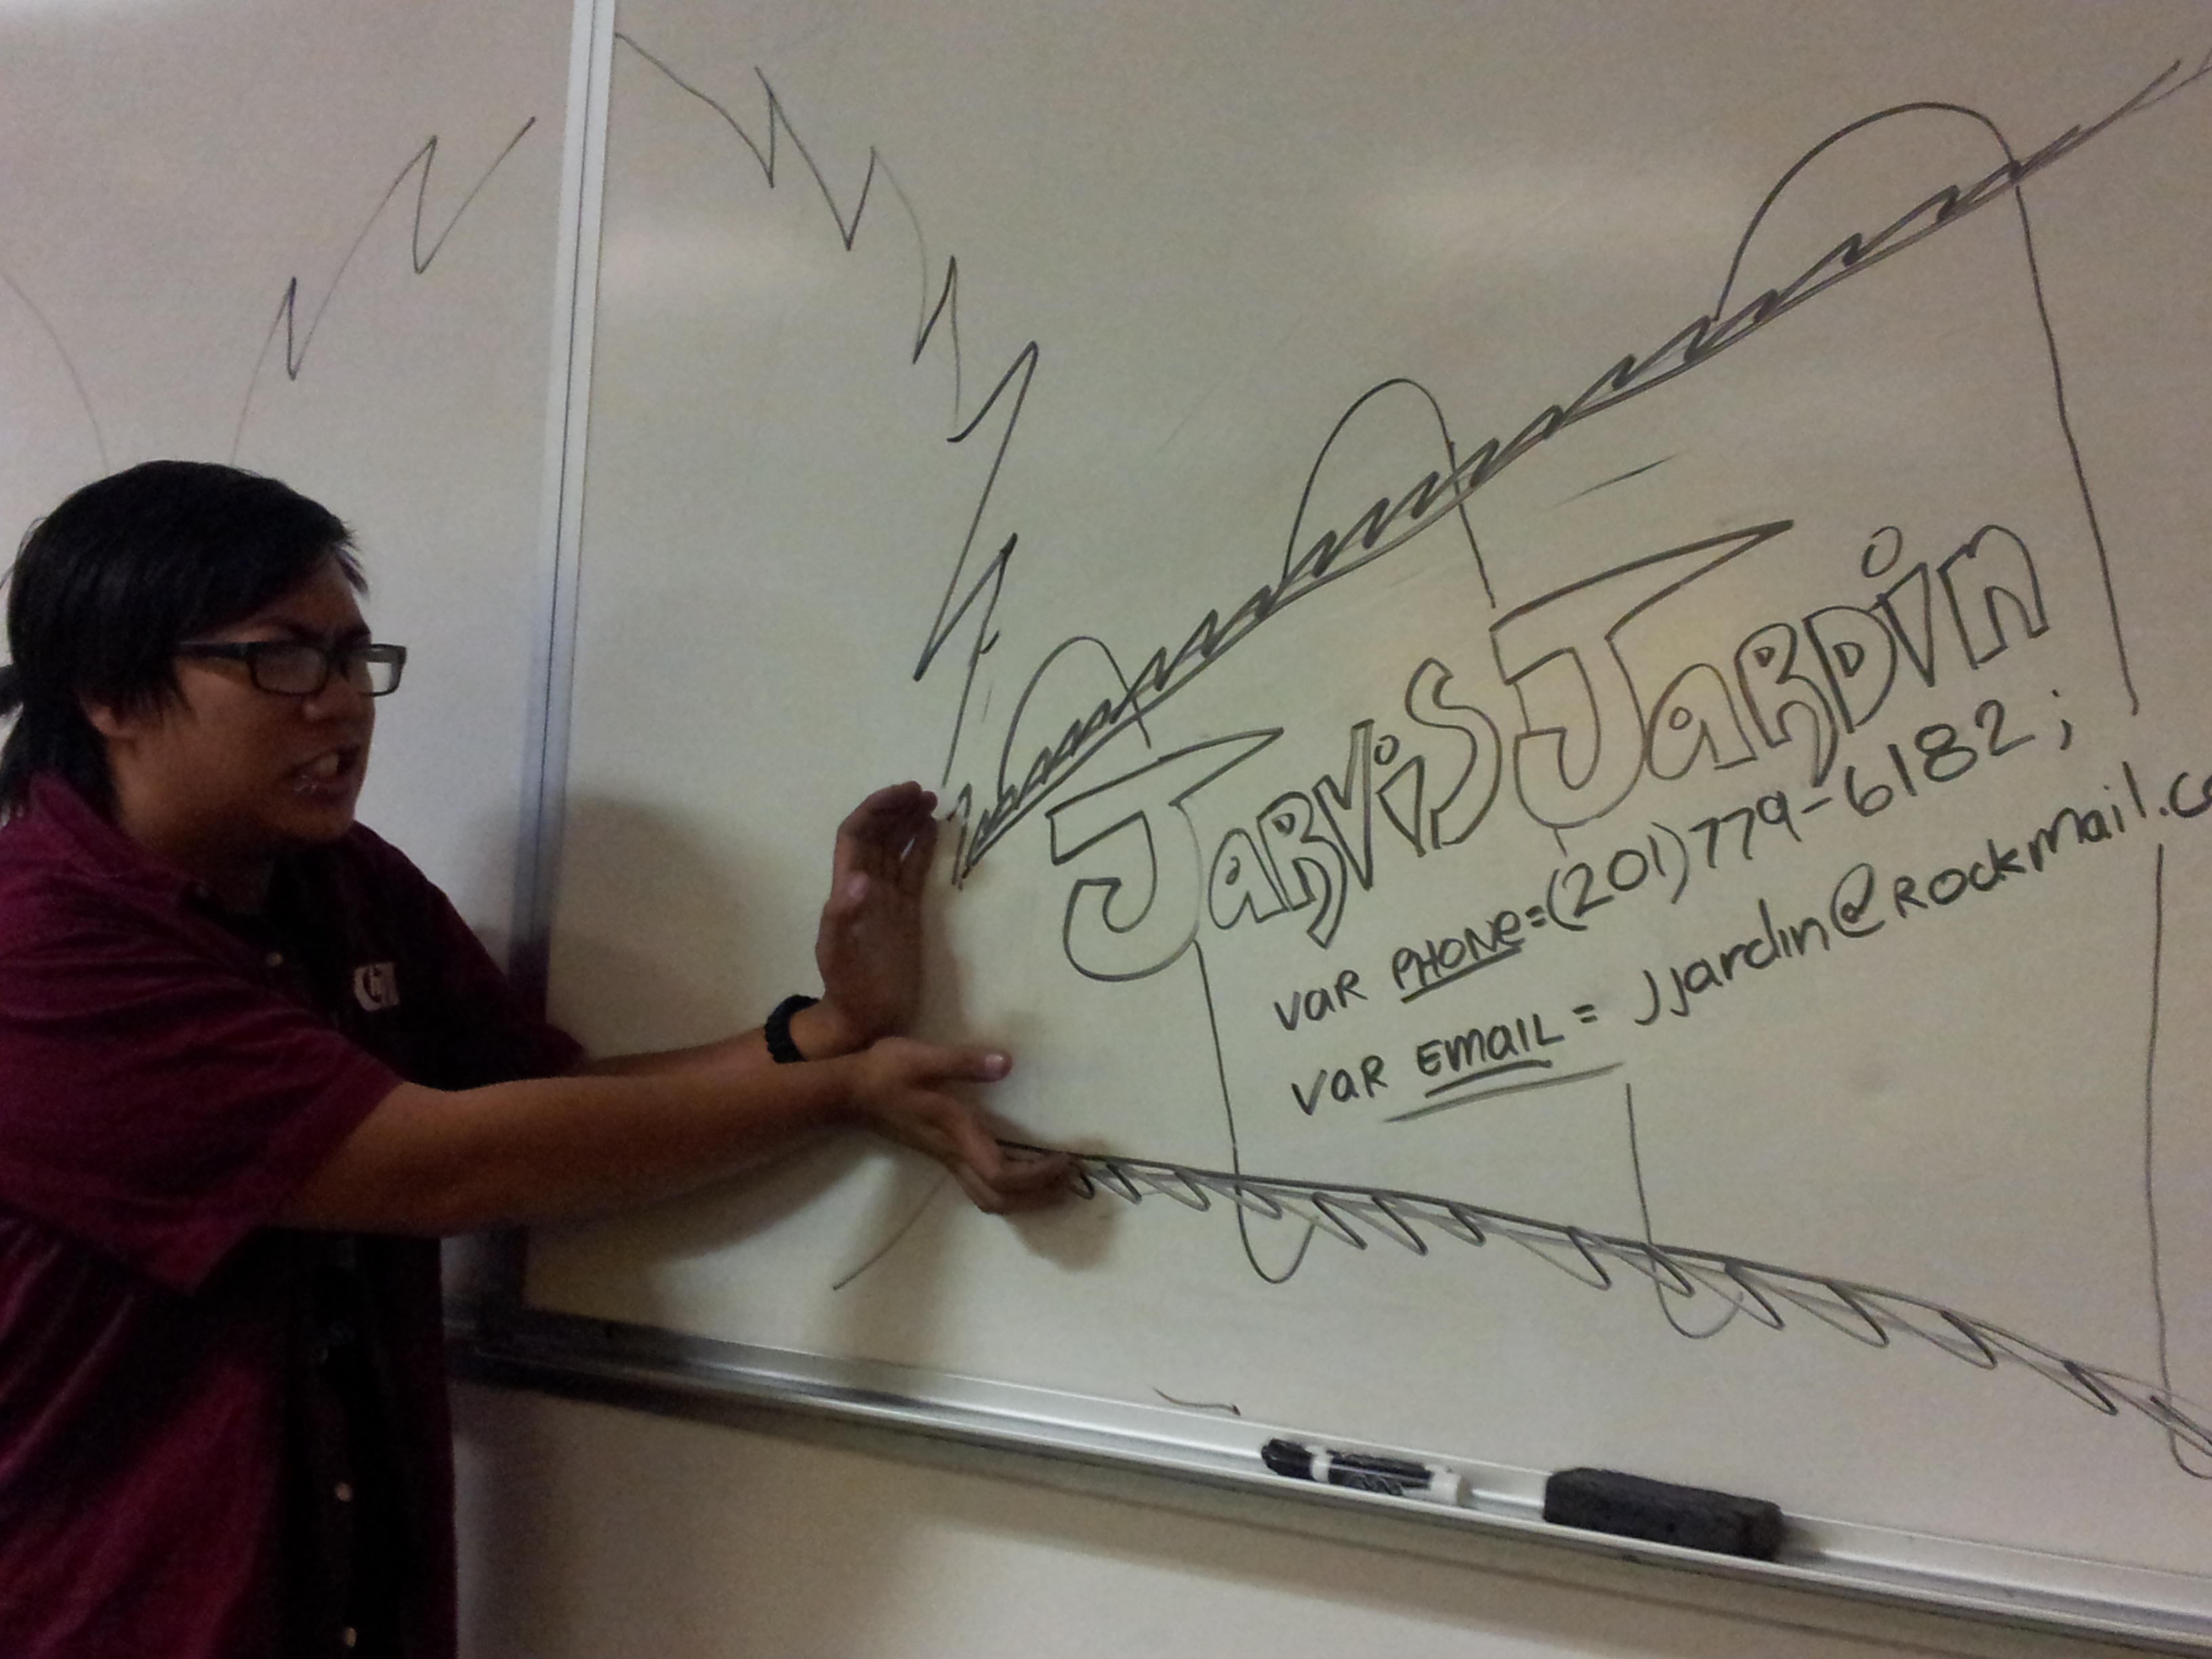 JaRViS JaRDin
vaR PHONe=(201)779-6182;
vaR EmaiL = jjardin@Rockmail.c